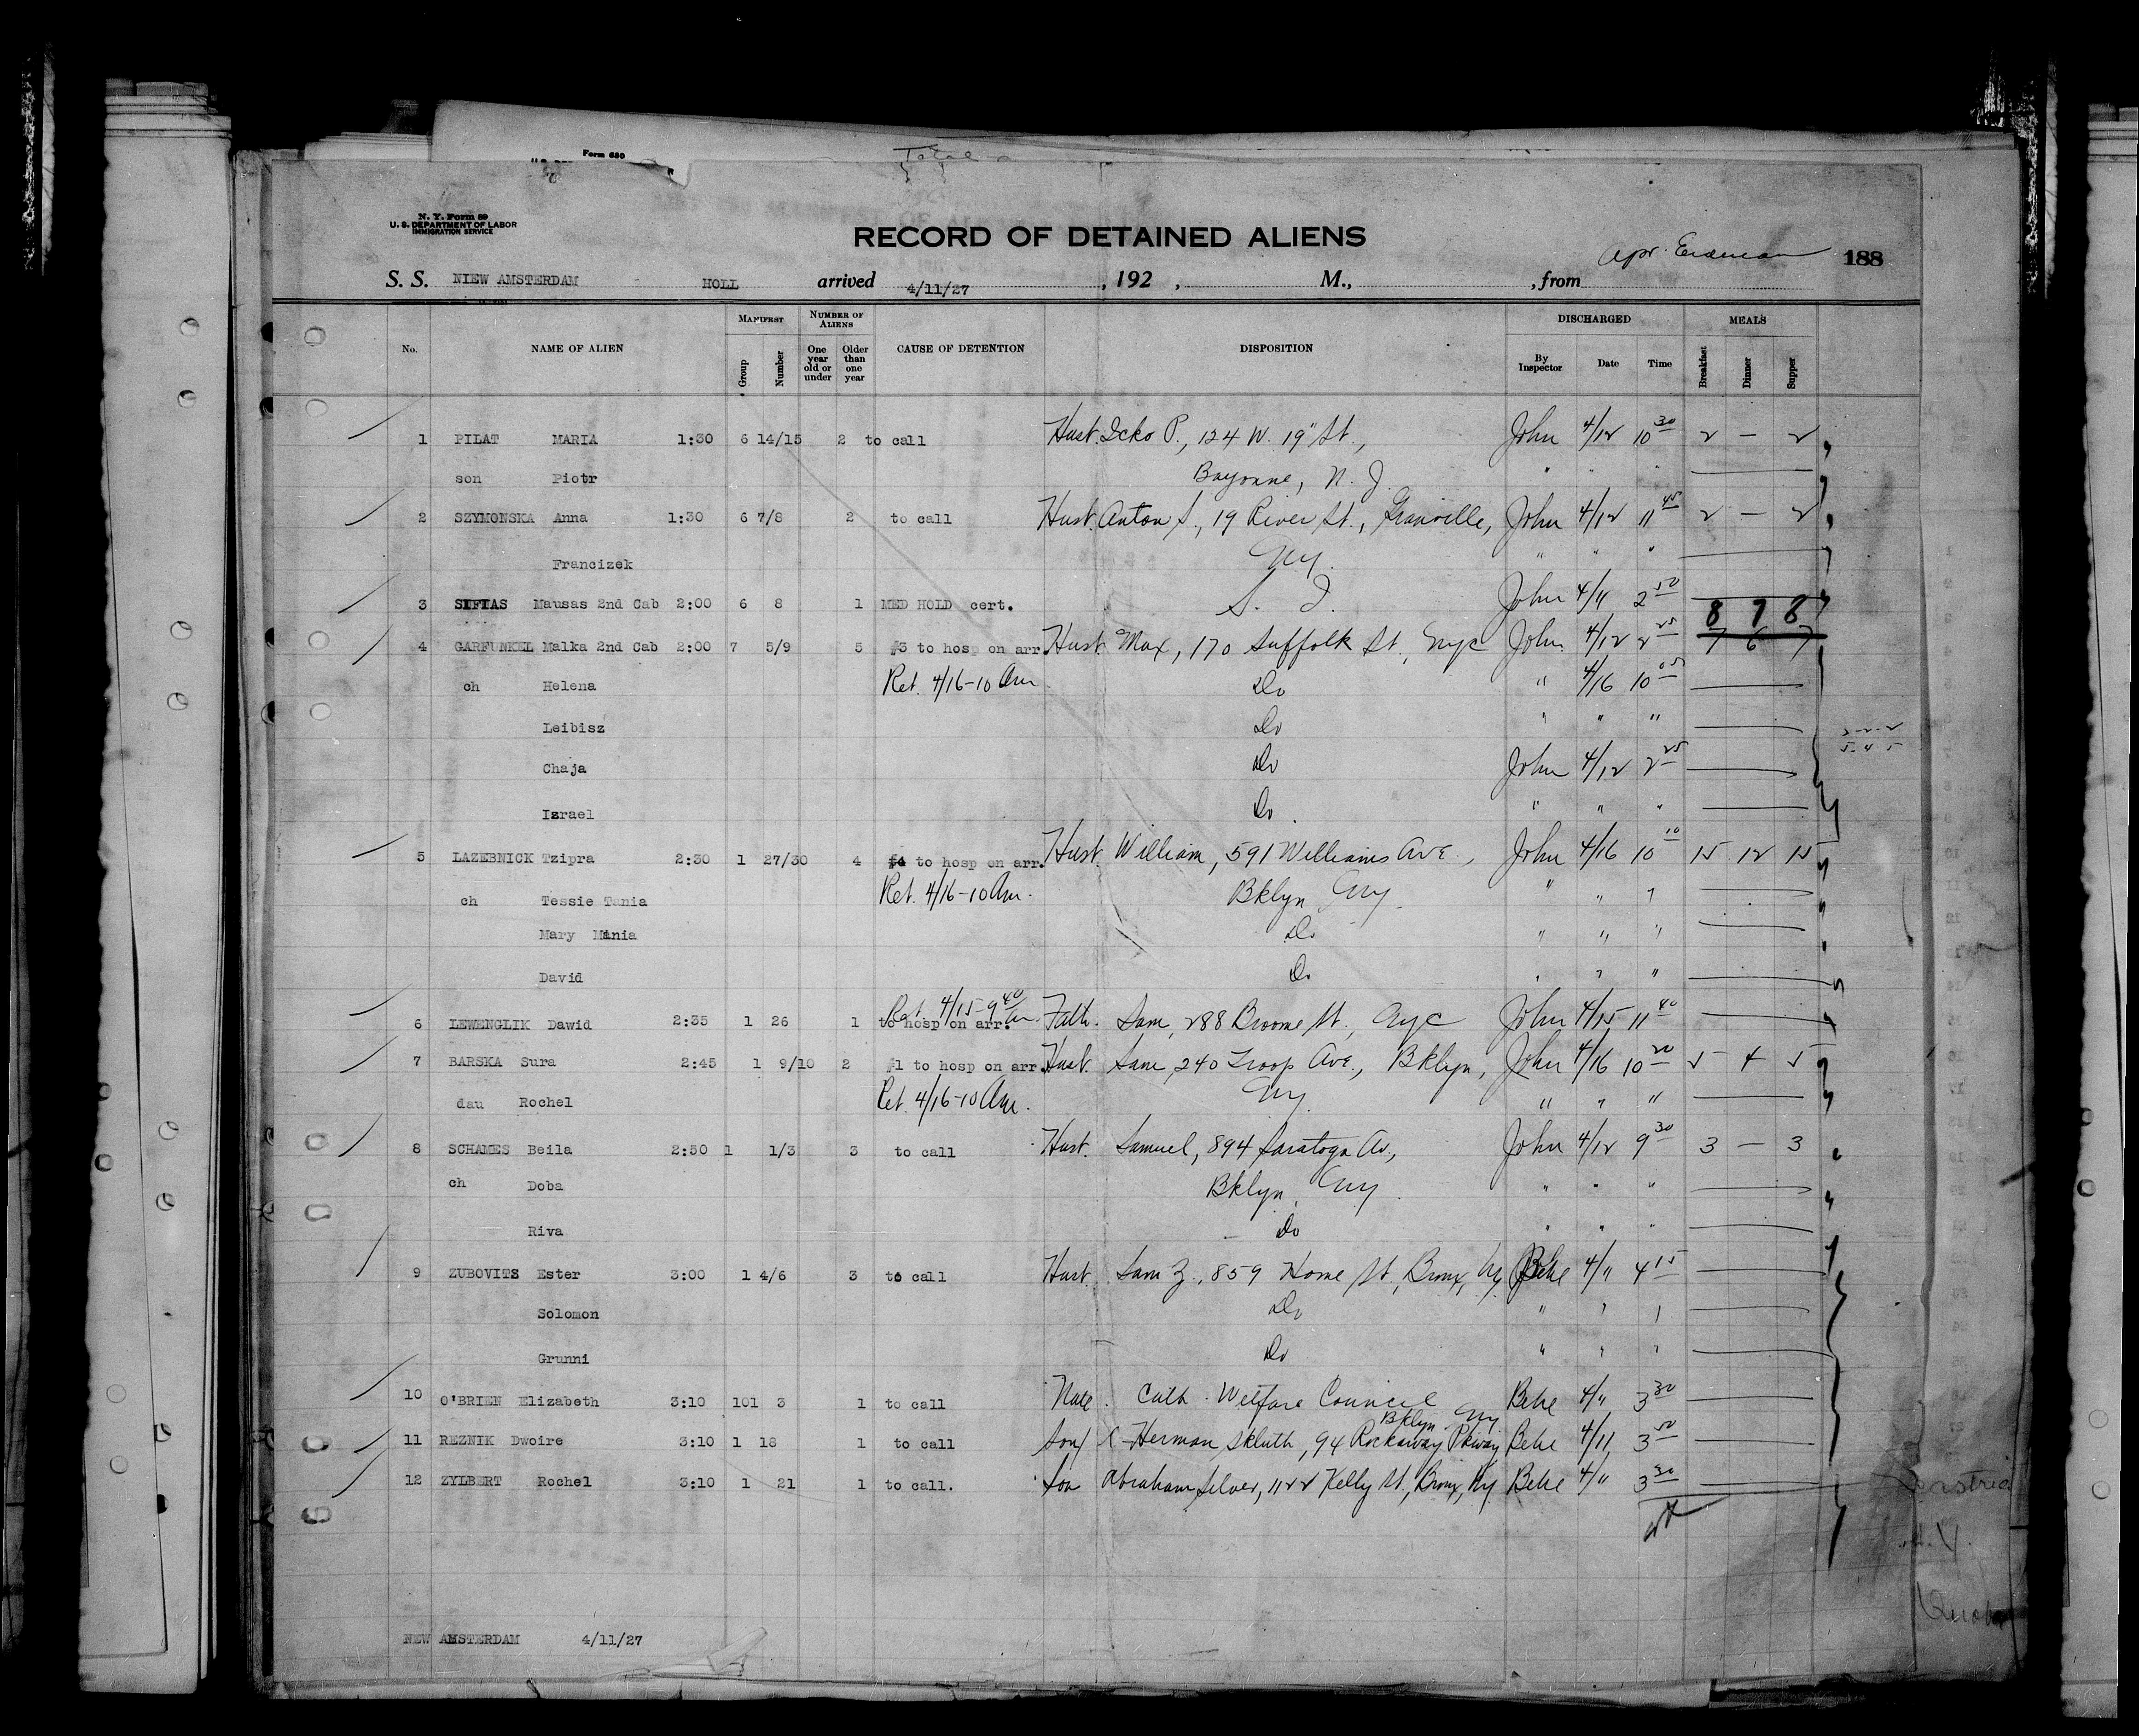 Form 630
Total
N. Y. Form 89
U. S. DEPARTMENT OF LABOR
IMMIGRATION SERVICE
RECORD OF DETAINED ALIENS
188
S. S. NIEW AMSTERDAM HOLL arrived 4/11/27 , 192 , M., , from Apr.
No. NAME OF ALIEN MANIFEST Group Number NUMBER OF ALIENS One year old or under Older than one year CAUSE OF DETENTION DISPOSITION DISCHARGED By Inspector Date Time MEALS Breakfast Dinner Supper
1 PILAT MARIA 1:30 6 14/15 2 to call Husb. Icko P., 124 W. 19" St., John 4/12 10 30 2 — 2
son Piotr Bayonne, N. J. " " "
2 SZYMONSKA Anna 1:30 6 7/8 2 to call Husb. Anton S., 19 River St., Granville, John 4/12 11 45 2 — 2
Francizek N.Y. " " "
3 SIFTAS Mausas 2nd Cab 2:00 6 8 1 MED HOLD cert. S. I. John 4/11 2 50
8 7 8
4 GARFUNKEL Malka 2nd Cab 2:00 7 5/9 5 #3 to hosp on arr. Husb Max, 170 Suffolk St., NYC John 4/12 2 25 7 6 7
ch Helena Ret. 4/16-10 Am Do " 4/16 10 05
Leibisz Do " " "
2-2-2
5-4-5
Chaja Do John 4/12 2 25
Izrael Do. " " "
5 LAZEBNICK Tzipra 2:30 1 27/30 4 #4 to hosp on arr. Husb. William, 591 Williams Ave., John 4/16 10 10 15 12 15
ch Tessie Tania Ret. 4/16-10 Am. Bklyn NY. " " "
Mary Mania Do " " "
David Do " " "
Ret. 4/15-9 40 Am.
6 LEWENGLIK Dawid 2:35 1 26 1 to hosp on arr. Fath. Sam, 288 Broome St., NYC John 4/15 11 40
7 BARSKA Sura 2:45 1 9/10 2 #1 to hosp on arr. Husb. Sam, 240 Troop Ave., Bklyn, John 4/16 10 20 5 4 5
dau Rochel Ret. 4/16-10 Am. NY. " " "
8 SCHAMES Beila 2:50 1 1/3 3 to call Husb. Samuel, 894 Saratoga Av., John 4/12 9 30 3 — 3
ch Doba Bklyn, NY. " " "
Riva Do " " "
9 ZUBOVITS Ester 3:00 1 4/6 3 to call Husb. Sam Z., 859 Home St., Bronx, NY Bebe 4/11 4 15
Solomon Do " " "
Grunni Do " " "
10 O'BRIEN Elizabeth 3:10 101 3 1 to call Natl. Cath. Welfare Council Bebe 4/11 3 30
Bklyn NY
11 REZNIK Dwoire 3:10 1 18 1 to call Son/ Herman Skluth, 94 Rockaway Pkway Bebe 4/11 3 50
12 ZYLBERT Rochel 3:10 1 21 1 to call. Son Abraham Silver, 1122 Kelly St., Bronx, NY. Bebe 4/11 3 30
NEW AMSTERDAM 4/11/27